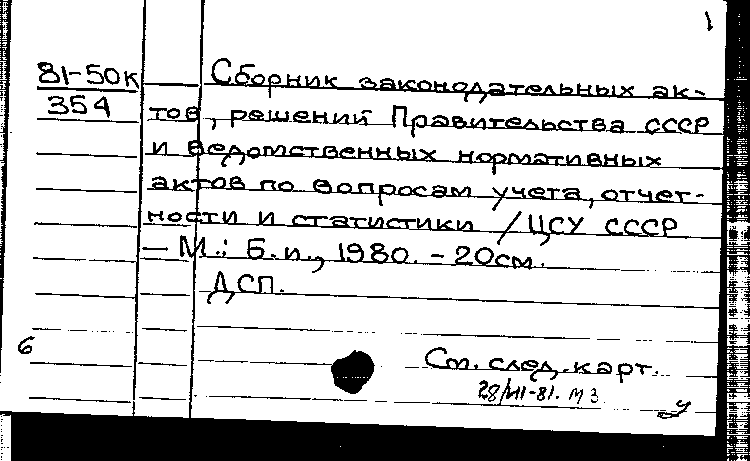 1
81-50к Сборник законодательных ак-
354 тов, решений Правительства СССР
и ведомственных нормативных
актов по вопросам учета, отчет-
ности и статистики / ЦСУ СССР
— М.: Б.и., 1980. - 20см.
ДСП.
6
См. след. карт.
28/VII-81. МЗ